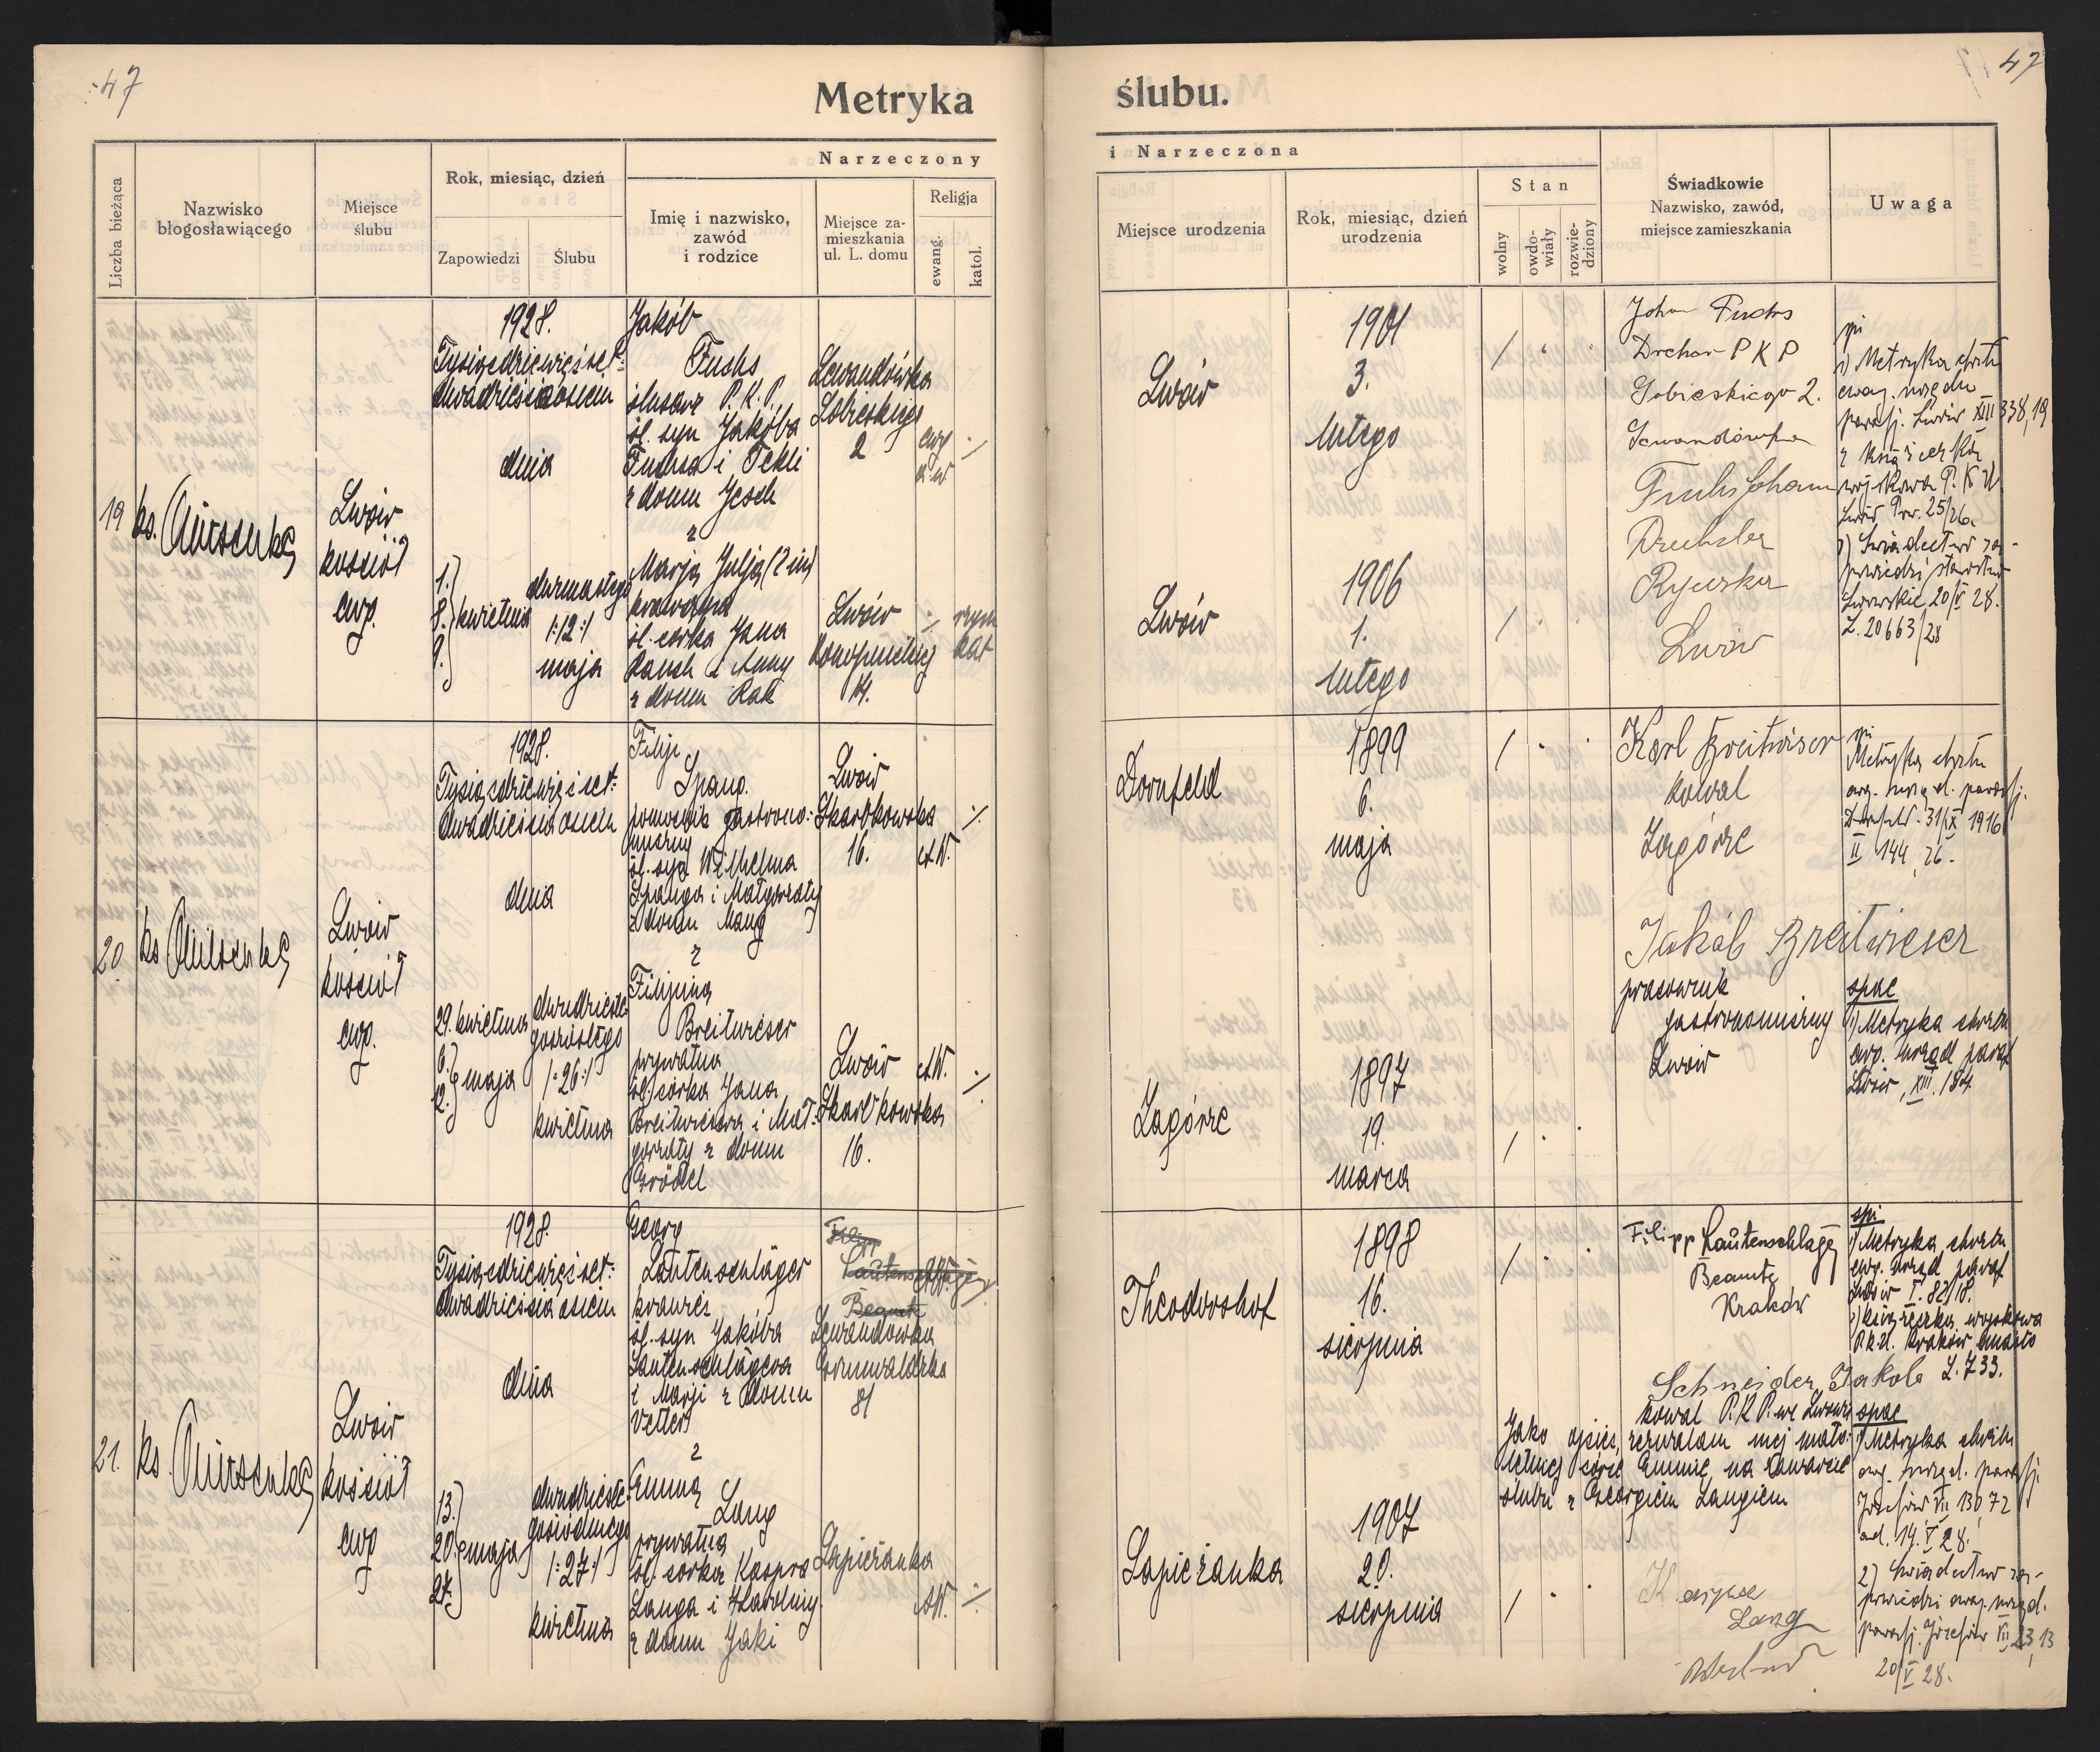 47
Metryka
ślubu.
47
Liczba bieżąca
Nazwisko
błogosławiącego
Miejsce
ślubu
Rok, miesiąc, dzień
Zapowiedzi
Ślubu
Narzeczony
Imię i nazwisko,
zawód
i rodzice
Miejsce za-
mieszkania
ul. L. domu
Religja
ewang.
katol.
i Narzeczona
Miejsce urodzenia
Rok, miesiąc, dzień
urodzenia
Stan
wolny
owdo-
wiały
rozwie-
dziony
Świadkowie
Nazwisko, zawód,
miejsce zamieszkania
Uwaga
19
ks.
Lwów
kościół
ewg.
1928.
Tysiącdziewięćset-
dwadzieściaosiem
dnia
1.
8.
9.
kwietnia
dwunastego
1:12:1
maja
Jakób
Fuchs
ślusarz P.K.P.
śl. syn Jakóba
Fuchsa i Tekli
z domu Jesch
z
Marja Julja
krawczyni
śl. córka Jana
i Anny
z domu Rak
Lewandówka
Sobieskiego
2
Lwów
Konopnickiej
14.
rzym
kat
Lwów
1901
3.
lutego
Lwów
1906
1.
lutego
John Fuchs
P K P
Sobieskiego 2.
Lewandówka
Fuchs Johann
Drechsler
Lwów
1) Metryka chrztu
ewag. urzędu
parafj. Lwów XIII 338,19
wojskowa P.K.U.
Lwów Pow. 25/26.
Lwowskie 20/V 28.
L. 20663/28
20.
ks
Lwów
kościół
ewg.
1928.
Tysiącdziewięćset:
dwadzieścia osiem
dnia
29. kwietnia
6.
12.
maja
dwudzieste-
goszóstego
1:26:1
kwietnia
Filip
Spang.
pomocnik gastrono:
miczny
śl. syn Wilhelma
Spanga i Małgorzaty
z domu Mang
z
Filipina
Breitwieser
prywatna
śl. córka Jana
Breitwiesera i Mał-
gorzaty z domu
Grödel
Lwów
Skarbkowska
16.
A.W.
Lwów
Skarbkowska
16.
A.W.
Dornfeld
1899
6.
maja
Zagórze
1897
19.
marca
Karl Breitwiser
kowal
Zagórze
Jakób Breitwieser
pracownik
gastronomiczny
Lwów
Metryka chrztu
ewg. urzęd. parafj.
31/X 1916
II 144, 26.
spac
1) Metryka chrztu
ewg. urząd paraf
Lwów, XIII. 184
21.
ks.
Lwów
kościół
ewg
1928.
Tysiącdziewięćset:
dwadzieścia osiem
dnia
13.
20.
27.
maja
dwudzieste-
gosiódmego
1:27:1
kwietnia
Georg
Lautenschläger
krawiec
śl. syn Jakóba
Lautenschlägera
i Marji z domu
Vetter
z
Emma
Lang
prywatna
śl. córka Kaspra
Langa i Karoliny
z domu Jaki
Filipp
Lautenschläger
Beamte
Lewandówka
Grunwaldzka
81
Sapieżanka
A.W.
Theodorshof
1898
16.
sierpnia
Sapieżanka
1907
20.
sierpnia
Filipp Lautenschläger
Beamte
Kraków
Schneider Jakob
kowal P.K.P. we Lwowie
Jako ojciec, zezwalam mej mało-
letniej córce Emmie, na zawarcie
ślubu z Georgiem Langiem
Kaspar
Lang
spi
1) Metryka chrztu
ewg. urząd paraf
Lwów I. 82/18.
2) książeczka wojskowa
P.K.U. Kraków Miasto
L. 733.
spac
1) Metryka chrztu
ewg. urzęd. parafj.
Józefów VII 130,72
ad. 14. V 28.
2) Świadectwo za-
powiedzi ewg. urzęd.
parafj. Józefów VII 23,13
20/V 28.